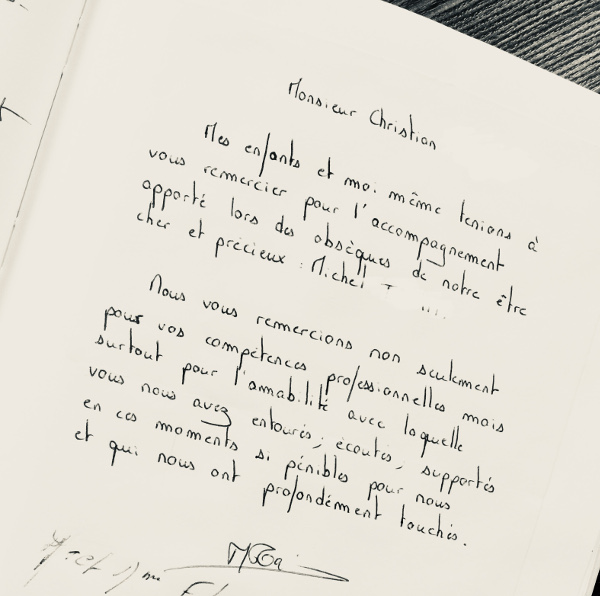 Monsieur Christian
Mes enfants et moi même tenions à
vous remercier pour l'accompagnement
apporté lors des obsèques de notre être
cher et précieux : Michel
Nous vous remercions non seulement
pour vos compétences professionnelles mais
surtout pour l'amabilité avec laquelle
vous nous avez entourés, écoutés, supportés
en ces moments si pénibles pour nous
et qui nous ont profondément touchés.